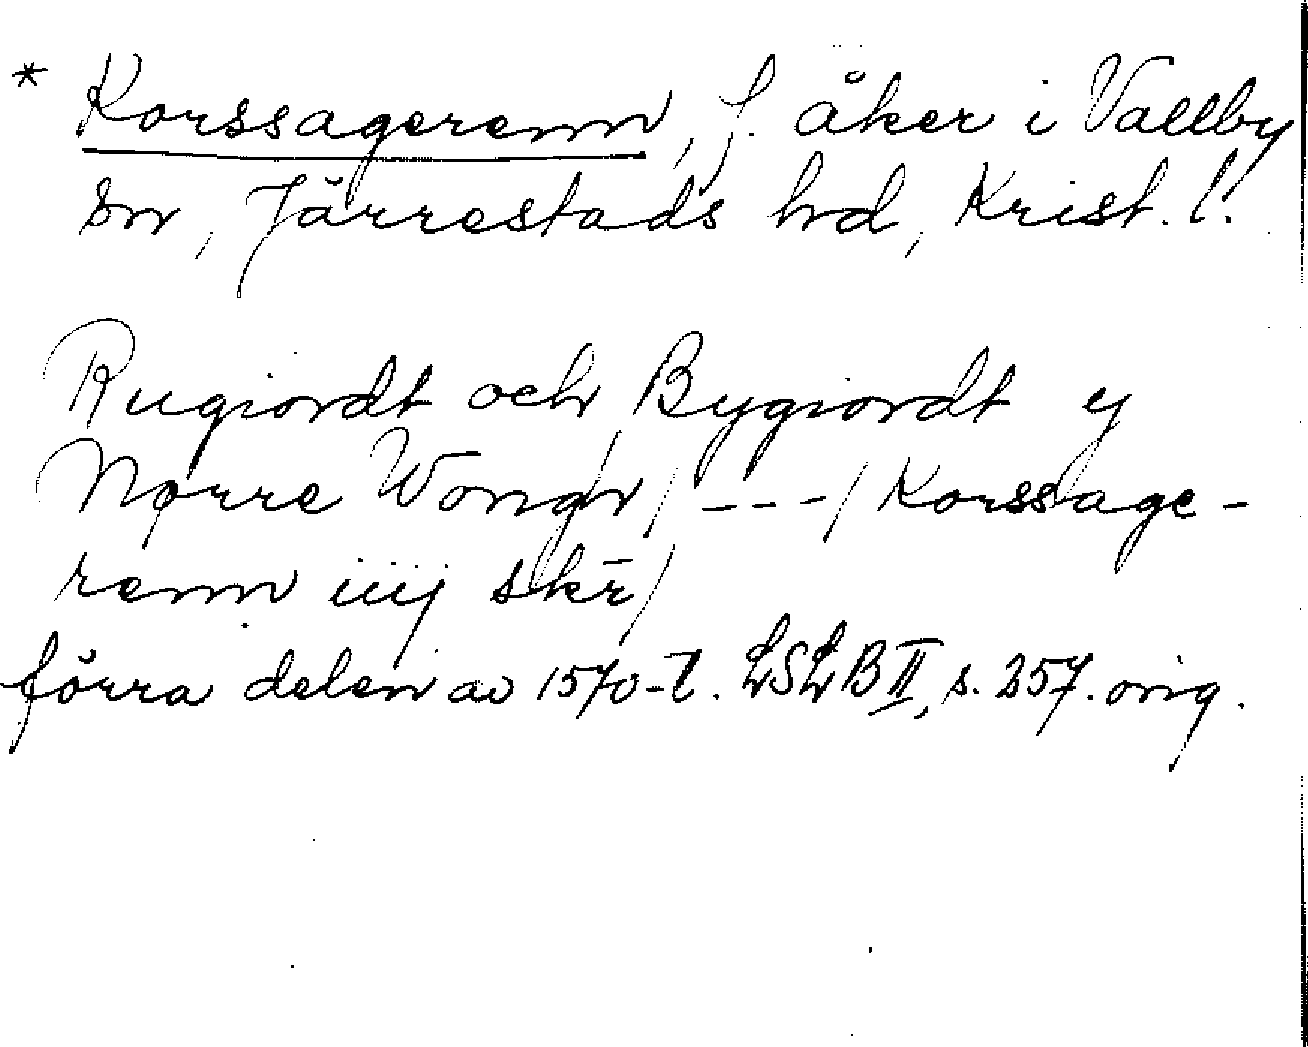 * Korssagerenn, f. åker i Vallby
sn, Järrestads hd, Krist. l.
Rugiordt och Bygiordt y
Nørre Wongn / --- / Korssage-
renn iiij skr̄ /
förra delen av 1570-t. LSLB II, s. 257. orig.